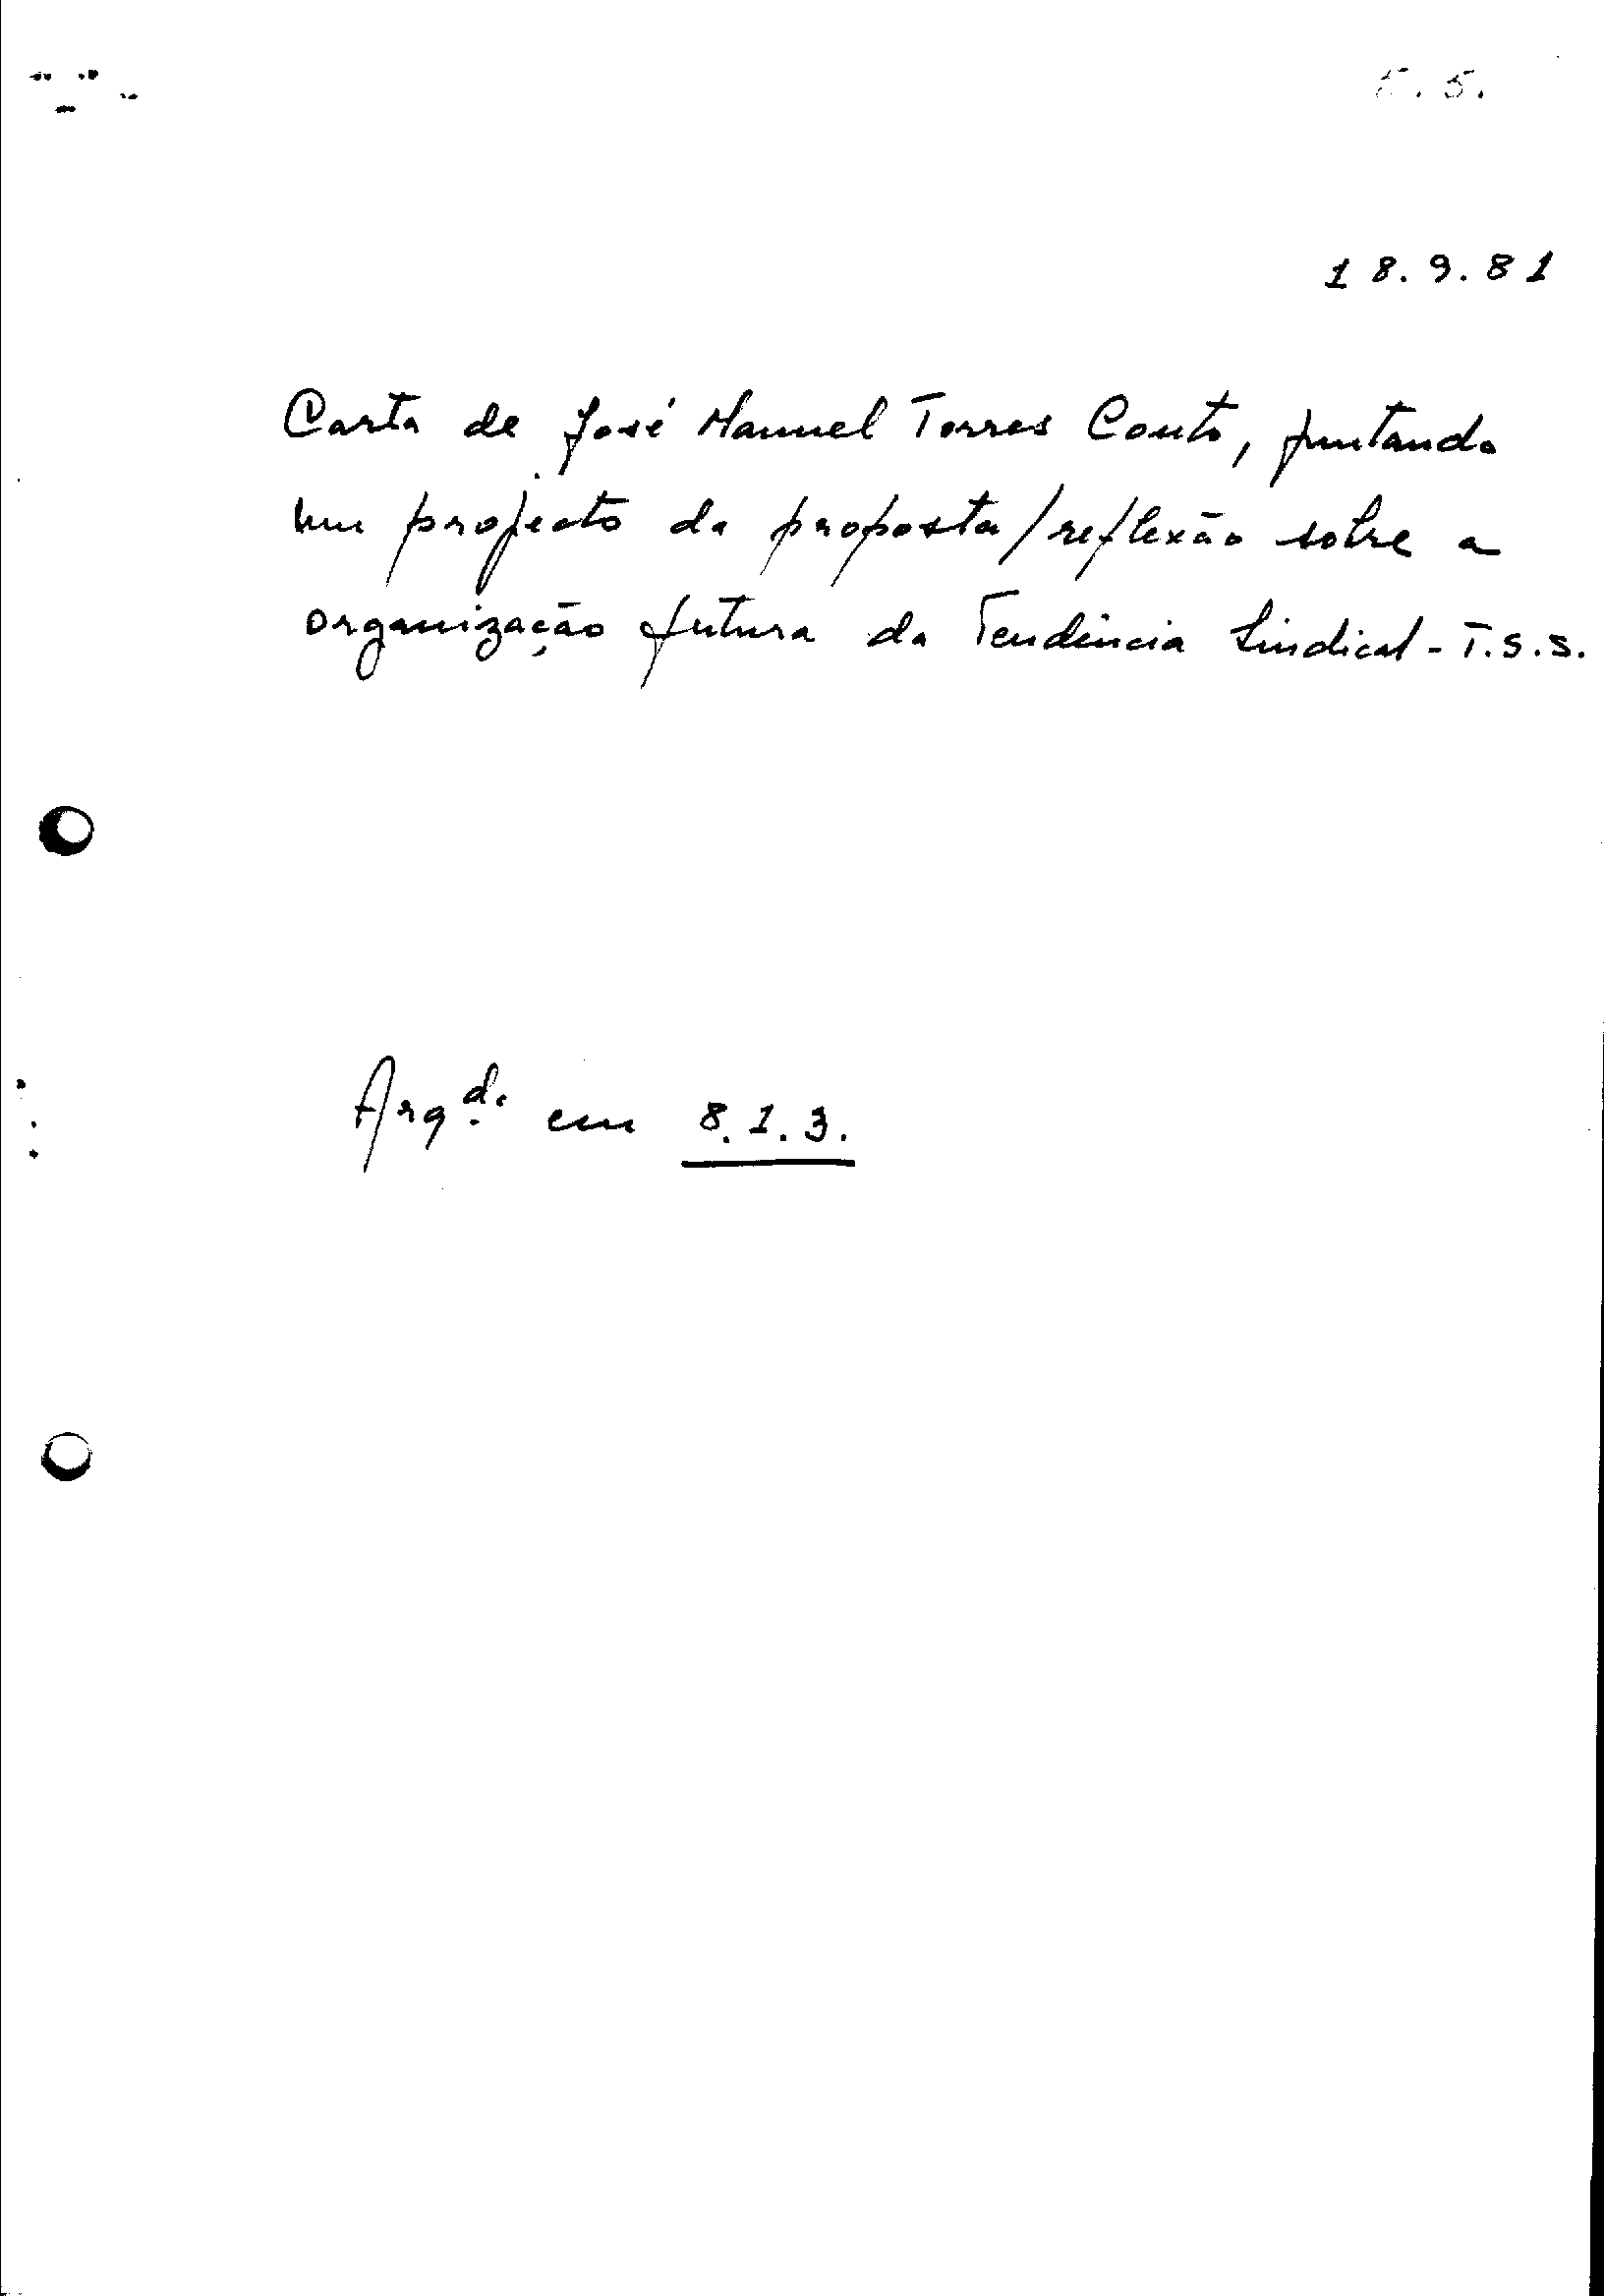 18.9.81
Carta de José Manuel Torres Couto, juntando
um projecto da proposta/reflexão sobre a
organização futura da Tendência Sindical - T.S.S.
Arqd. em 8.1.3.